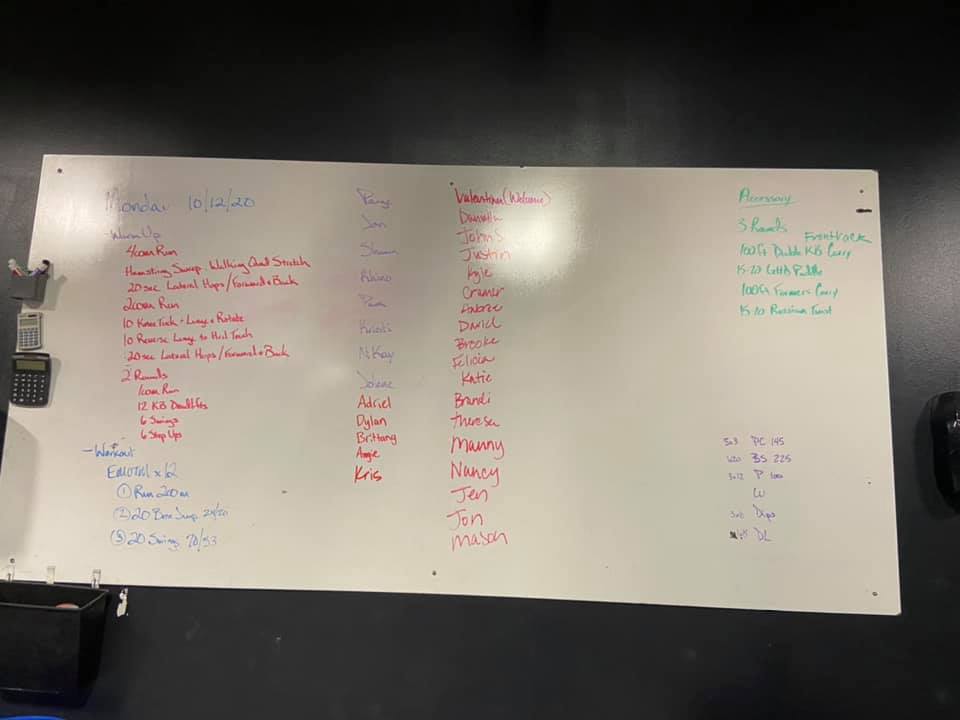 Monday 10/12/20
- Warm Up
400m Run
Hamstring Sweep - Walking Quad Stretch
20 sec Lateral Hops / Forward + Back
200m Run
10 Knee Tuck - Lunge + Rotate
10 Reverse Lunge to Heel Touch
20 sec Lateral Hops / Forward + Back
2 Rounds
100m Run
12 KB Deadlifts
6 Swings
6 Step Ups
- Workout
EMOM x 12
① Run 200m
② 20 Box Jump 24/20
③ 20 Swings 70/53
Jon
Shawn
Rhino
Kristi
McKay
Jolene
Adriel
Dylan
Brittany
Angie
Kris
(Welcome)
Danielle
John S
Justin
Kyle
Cramer
Andree
David
Brooke
Felicia
Katie
Brandi
Theresa
Manny
Nancy
Jen
Jon
Mason
Accessory
3 Rounds
Front rack
100ft Double KB Carry
15-20 GHD
100ft Farmers Carry
15-20 Russian Twist
5x3 PC 145
BS 225
P 100
W
Dips
DL